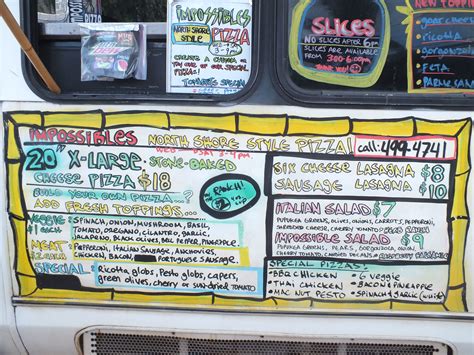 IMPOSSIBLES
NORTH SHORE
STYLE PIZZA
SLICES
NO SLICES AFTER 6pm
SLICES ARE AVAILABLE
FROM 3:00-6:00pm
THANK YOU!
ricotta
FETA
IMPOSSIBLES NORTH SHORE STYLE PIZZA! call: 499-4741
20" X-LARGE, STONE-BAKED
CHEESE PIZZA $18
BUILD YOUR OWN PIZZA...?
ADD FRESH TOPPINGS...
RANCH!
VEGGIE SPINACH, ONION, MUSHROOM, BASIL,
$1 TOMATO, OREGANO, CILANTRO, GARLIC,
JALAPENO, BLACK OLIVES, BELL PEPPER, PINEAPPLE
MEAT PEPPERONI, ITALIAN SAUSAGE, ANCHOVIES,
CHICKEN, BACON, PORTUGUESE SAUSAGE
SPECIAL Ricotta globs, Pesto globs, capers,
green olives, cherry or sun-dried TOMATO
SIX CHEESE LASAGNA $8
SAUSAGE LASAGNA $10
ITALIAN SALAD $7
PUPUKEA GREENS, OLIVES, ONIONS, CARROTS, PEPPERONI,
SHREDDED CHEESE, CHERRY TOMATO
IMPOSSIBLE SALAD $9
PUPUKEA GREENS, PEARS, GORGONZOLA, ONION,
CHERRY TOMATO, CANDIED PECANS
SPECIAL PIZZAS!
• BBQ CHICKEN • 6 veggie
• THAI CHICKEN • BACON & PINEAPPLE
• MAC NUT PESTO • SPINACH & GARLIC (white)